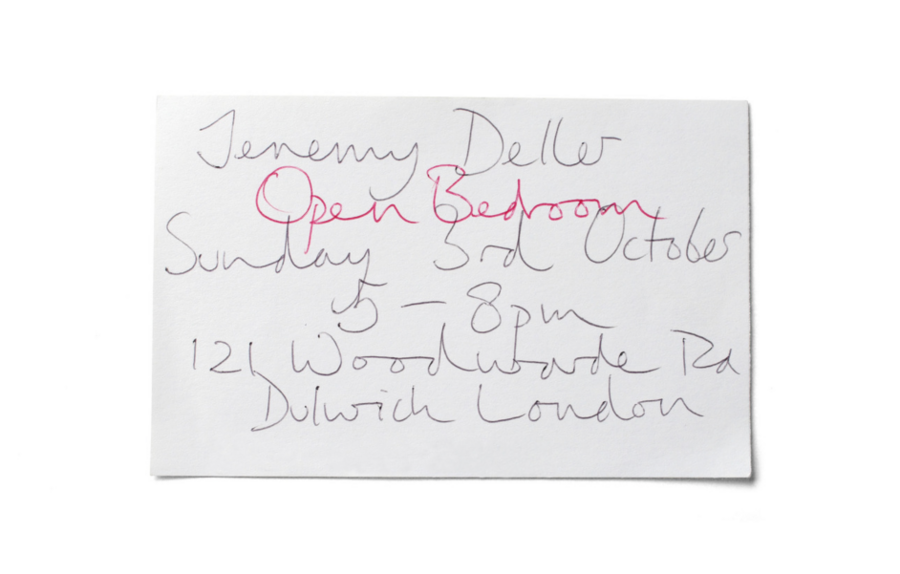 Jeremy Deller
Open Bedroom
Sunday 3rd October
5 – 8pm
121 Woodwarde Rd
Dulwich London